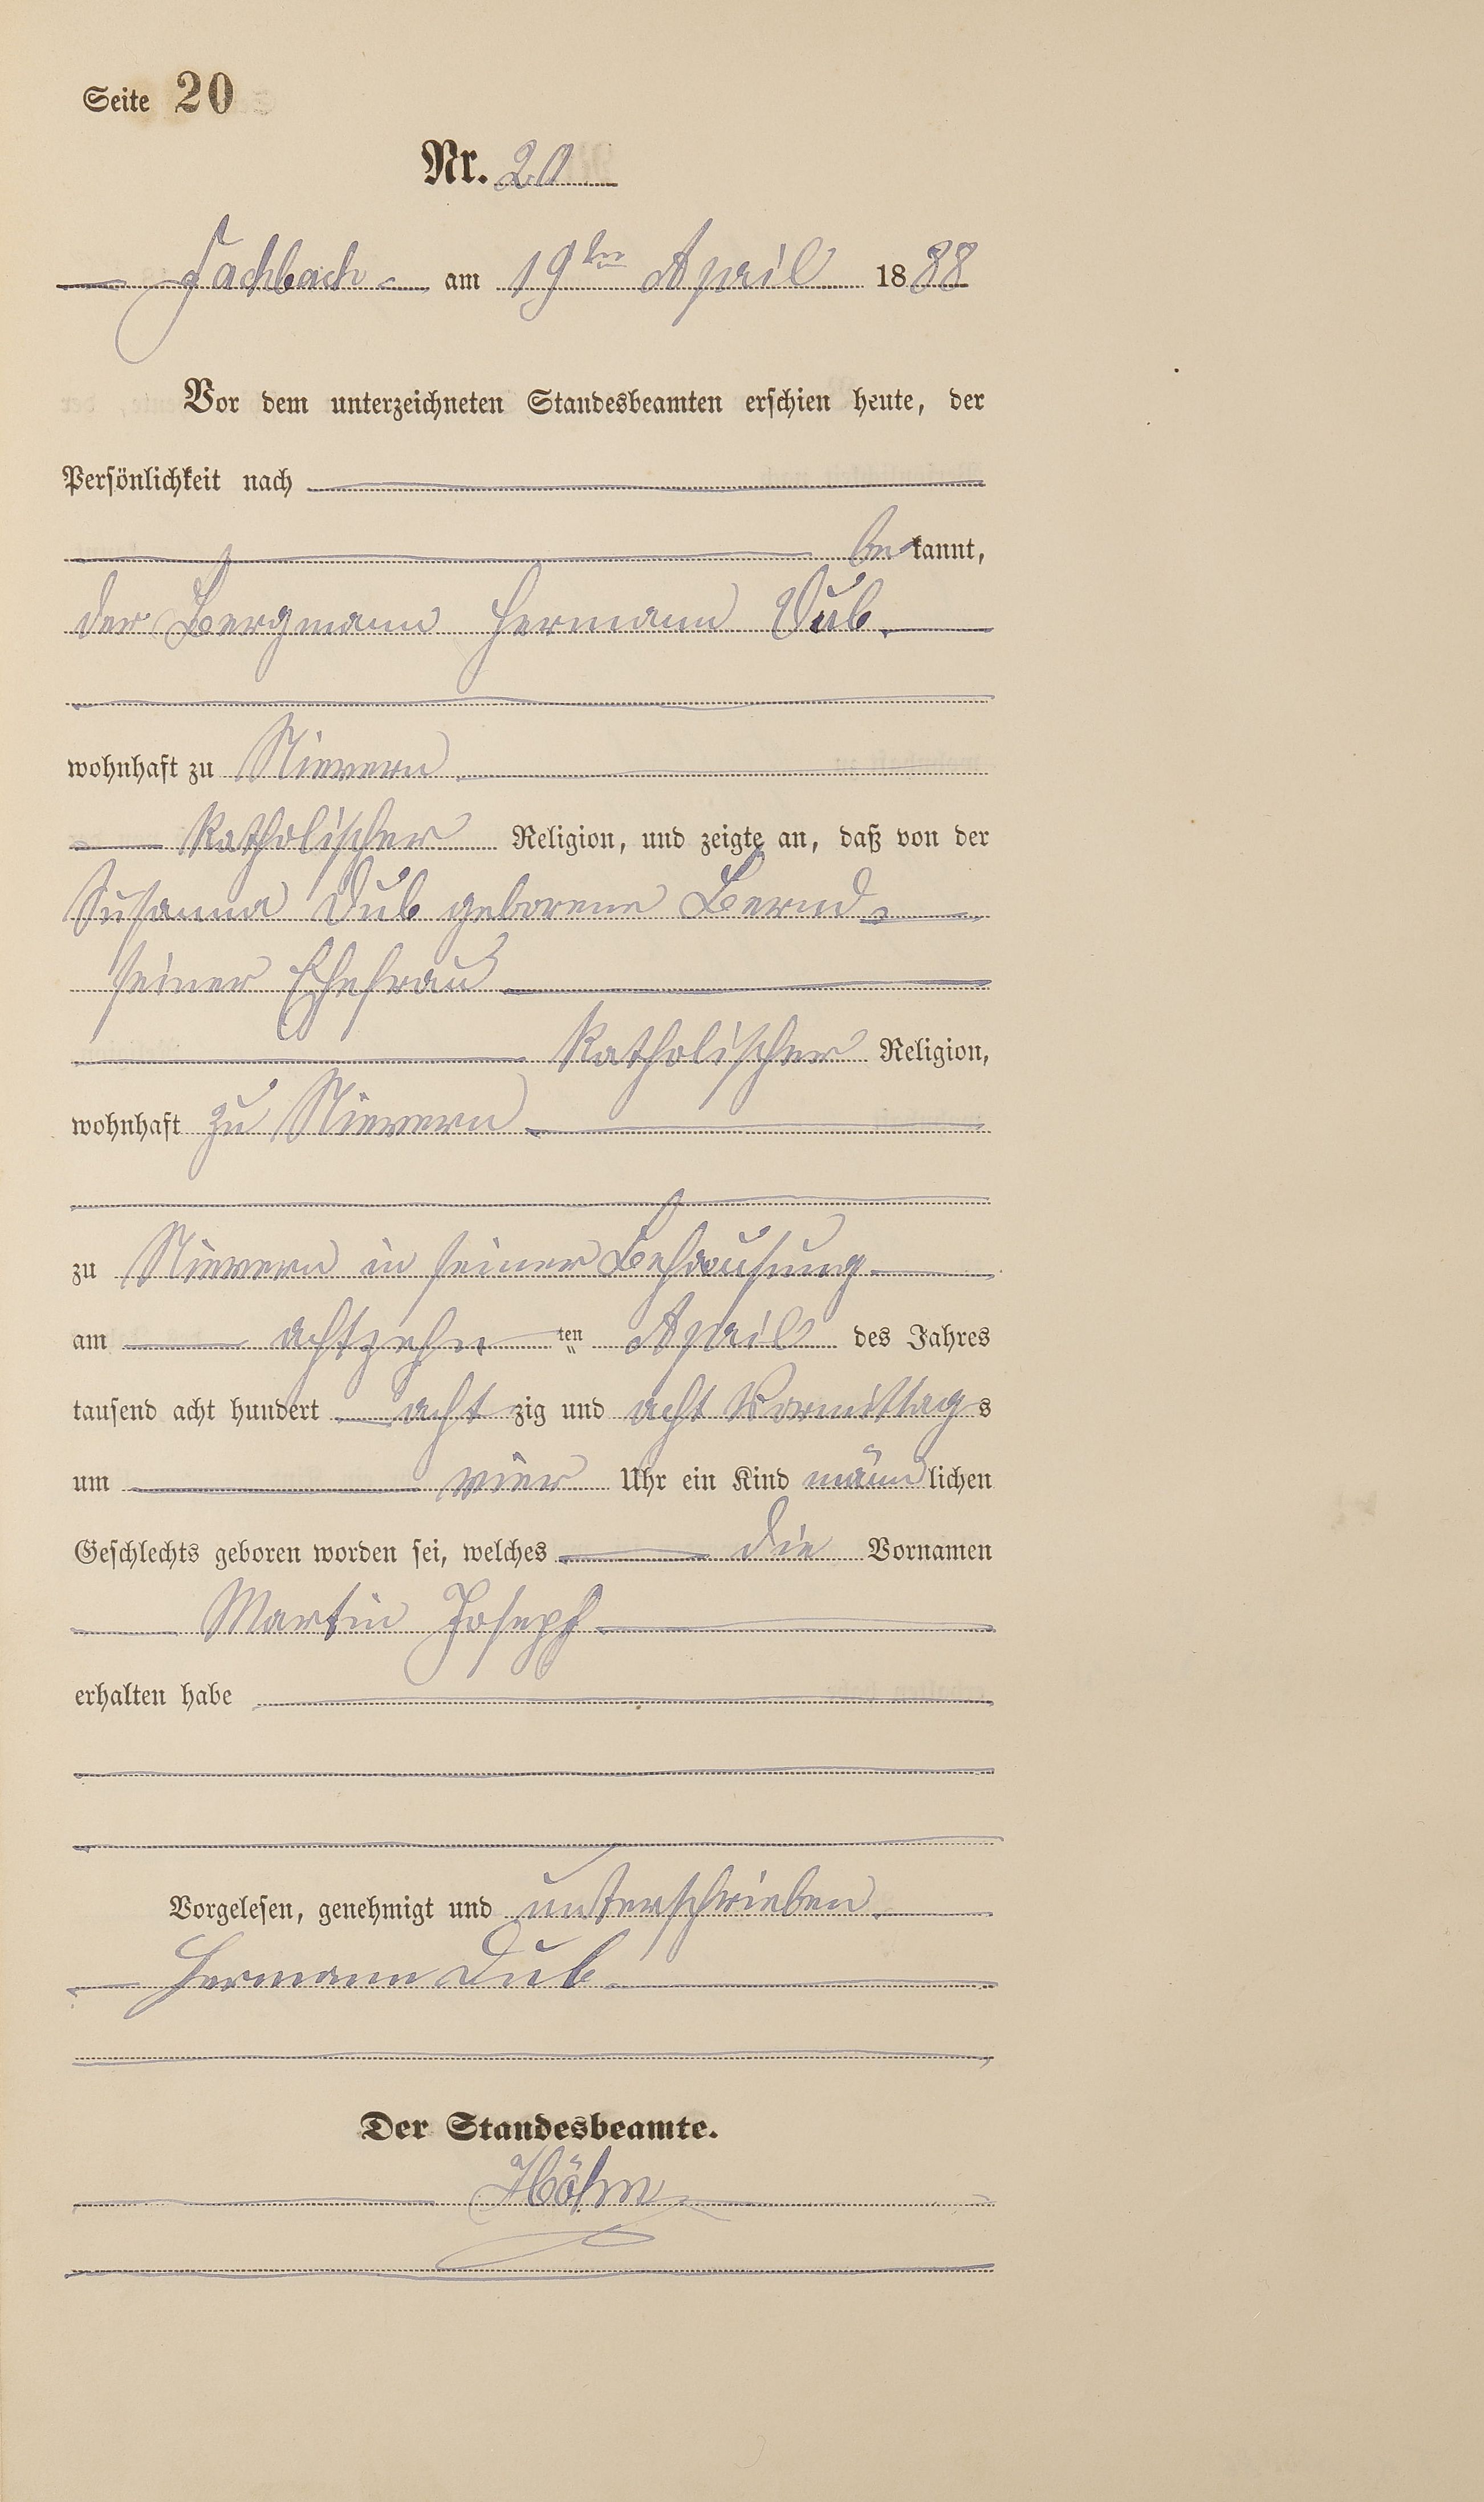 Seite 20
Nr. 20
Fachbach am 19ten April 1888
Vor dem unterzeichneten Standesbeamten erschien heute, der
Persönlichkeit nach
bekannt,
der Bergmann Hermann Dub.
wohnhaft zu Nievern
katholischer Religion, und zeigte an, daß von der
Susanna Dub geborene Bernd,
seiner Ehefrau
katholischer Religion,
wohnhaft zu Nievern
zu Nievern in seiner Behausung
am achtzehn ten April des Jahres
tausend acht hundert achtzig und acht Vormittags
um vier Uhr ein Kind männlichen
Geschlechts geboren worden sei, welches die Vornamen
Martin Joseph
erhalten habe
Vorgelesen, genehmigt und unterschrieben.
Hermann Dub.
Der Standesbeamte.
Höhn